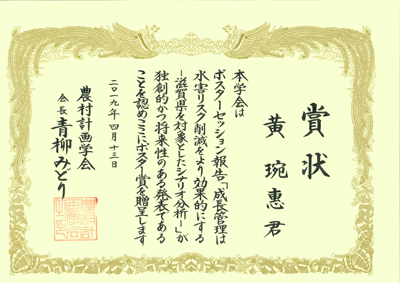 賞状
黄琬惠君
本学会は
ポスターセッション報告「成長管理は
水害リスク削減をより効果的にする
－滋賀県を対象としたシナリオ分析－」が
独創的かつ将来性のある発表である
ことを認めここにポスター賞を贈呈します
二〇一九年四月十三日
農村計画学会
会長青柳みどり